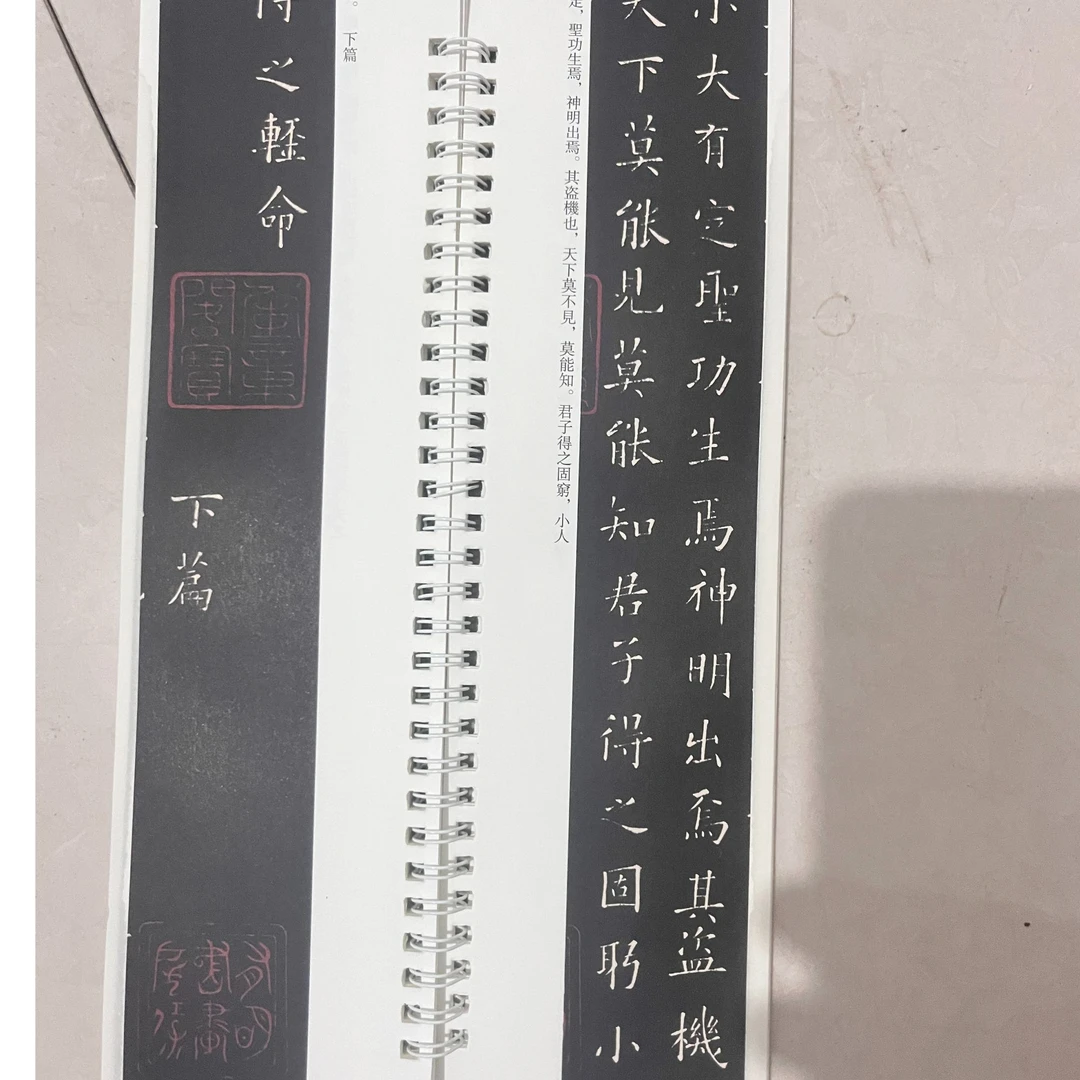 小大有定聖功生焉神明出焉其盜機
天下莫能見莫能知君子得之固躬小
定，聖功生焉，神明出焉。其盜機也，天下莫不見，莫能知。君子得之固窮，小人
。 下篇
得之輕命
下篇